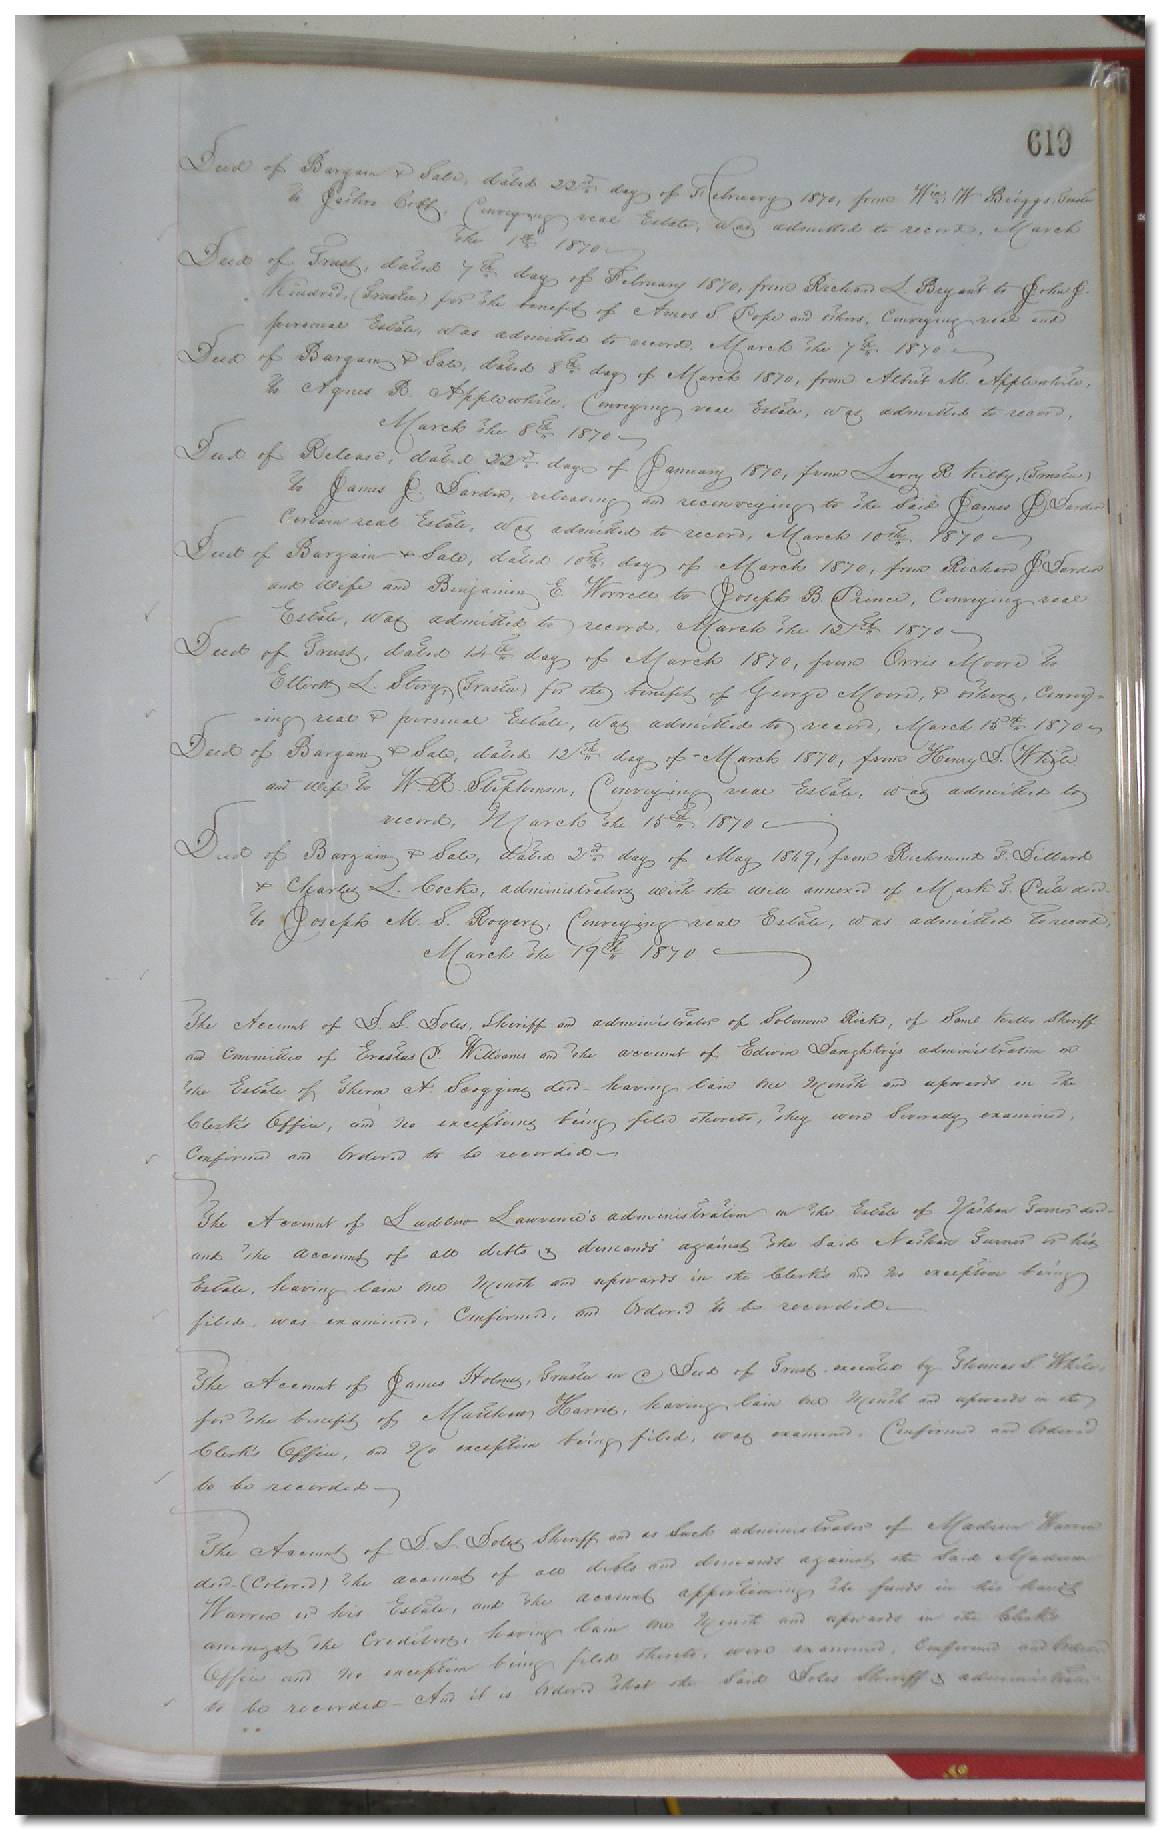 619
Deed of Bargain & Sale, dated 22nd day of February 1870, from Wm. W Briggs,
to Cobb, Conveying real Estate, was admitted to record, March
the 1st 1870
Deed of Trust, dated 7th day of February 1870, from Richard L. Bryant to John J.
Kindred, (Trustee) for the benefit of Amos S Pope and others, Conveying real and
personal Estate, was admitted to record, March the 7th 1870
Deed of Bargain & Sale, dated 8th day of March 1870, from Albert M. Applewhite,
to Agnes R. Applewhite, Conveying real Estate, was admitted to record,
March the 8th 1870
Deed of Release, dated 22nd day of January 1870, from Leroy R Kilby, (Trustee)
to James J. Darden, releasing and reconveying to the Said James J. Darden
Certain real Estate, was admitted to record, March 10th 1870
Deed of Bargain & Sale, dated 10th day of March 1870, from Richard J Darden
and wife and Benjamin E. Worrell to Joseph B. Prince, Conveying real
Estate, was admitted to record, March the 12th 1870
Deed of Trust, dated 14th day of March 1870, from Orris Moore to
Elliott L. Story, (Trustee) for the benefit of George Moore, & others, Convey-
ing real & personal Estate, was admitted to record, March 15th 1870
Deed of Bargain & Sale, dated 12th day of March 1870, from Henry D. White
and wife to W. R. Stephenson, Conveying real Estate, was admitted to
record, March the 15th 1870
Deed of Bargain & Sale, dated 2nd day of May 1869, from Richmond F. Dillard
& Charles L. Cocke, administrators with the will annexed of Mark T. Peete decd.
to Joseph M. S. Rogers, Conveying real Estate, was admitted to record,
March the 19th 1870
The Account of D. S. Doles, Sheriff and administrator of Solomon Ricks, of Same Sheriff
and Committee of Erastus P. Williams and the account of Edwin Daughtry's administration on
the Estate of A. Scoggins decd- having lain one Month and upwards in the
Clerk's Office, and no exceptions being filed thereto, they were Severally examined,
Confirmed and Ordered to be recorded
The Account of Ludlow Lawrence's administration on the Estate of Nathan Turner decd-
and the account of all debts & demands against the Said Nathan Turner or his
Estate, having lain one Month and upwards in the Clerk's and no exception being
filed, was examined, Confirmed, and Ordered to be recorded
The Account of James Holmes, Trustee in a Deed of Trust executed by Thomas S. White,
for the benefit of Matthew Harris, having lain one Month and upwards in the
Clerk's Office, and No exception being filed, was examined, Confirmed and Ordered
to be recorded
The Account of D. S. Doles Sheriff and as Such administrator of Madison Warren
decd- (Colored) the account of all debts and demands against the Said Madison
Warren or his Estate, and the account apportioning the funds in his hands
amongst the Creditors, having lain one Month and upwards in the Clerk's
Office and no exception being filed thereto, were examined, Confirmed and Ordered
to be recorded - And it is Ordered that the Said Doles Sheriff & administrator